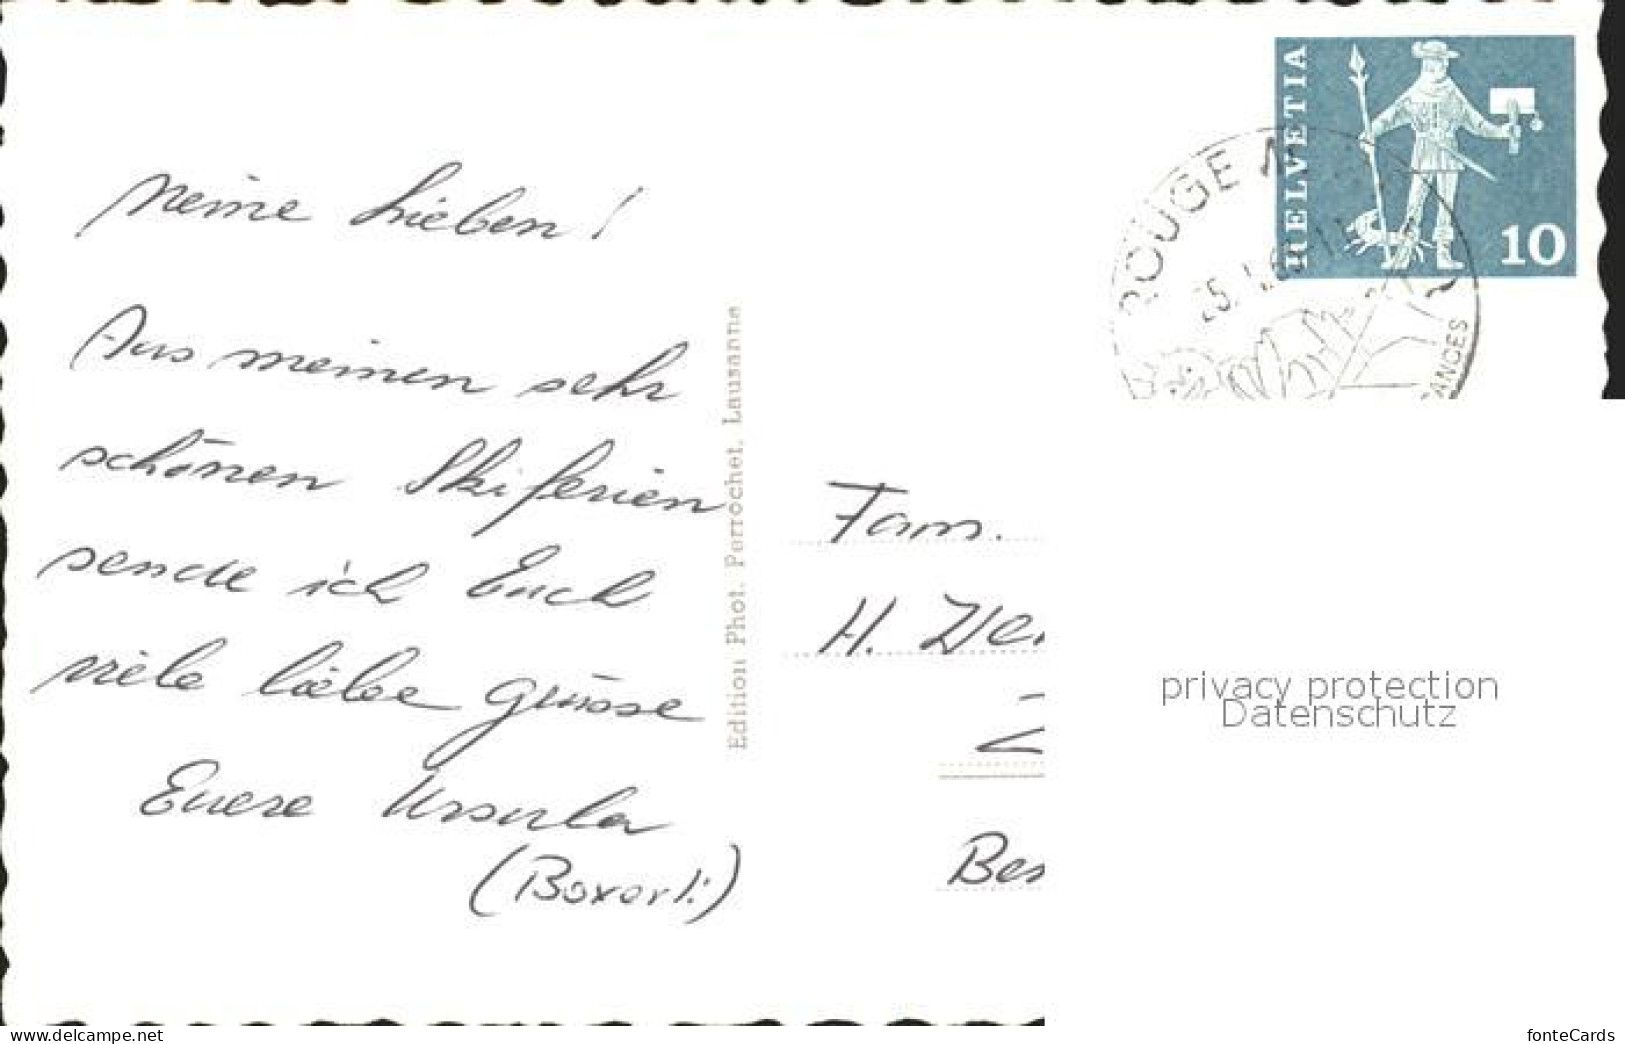 Meine Lieben!
Aus meinen sehr
schönen Skiferien
sende ich Euch
viele liebe grüsse
Euere Ursula
(Boxerli)
Edition Phot. Perrochet, Lausanne
HELVETIA
10
ROUGE
Fam.
H.
privacy protection
Datenschutz
www.delcampe.net
fonteCards